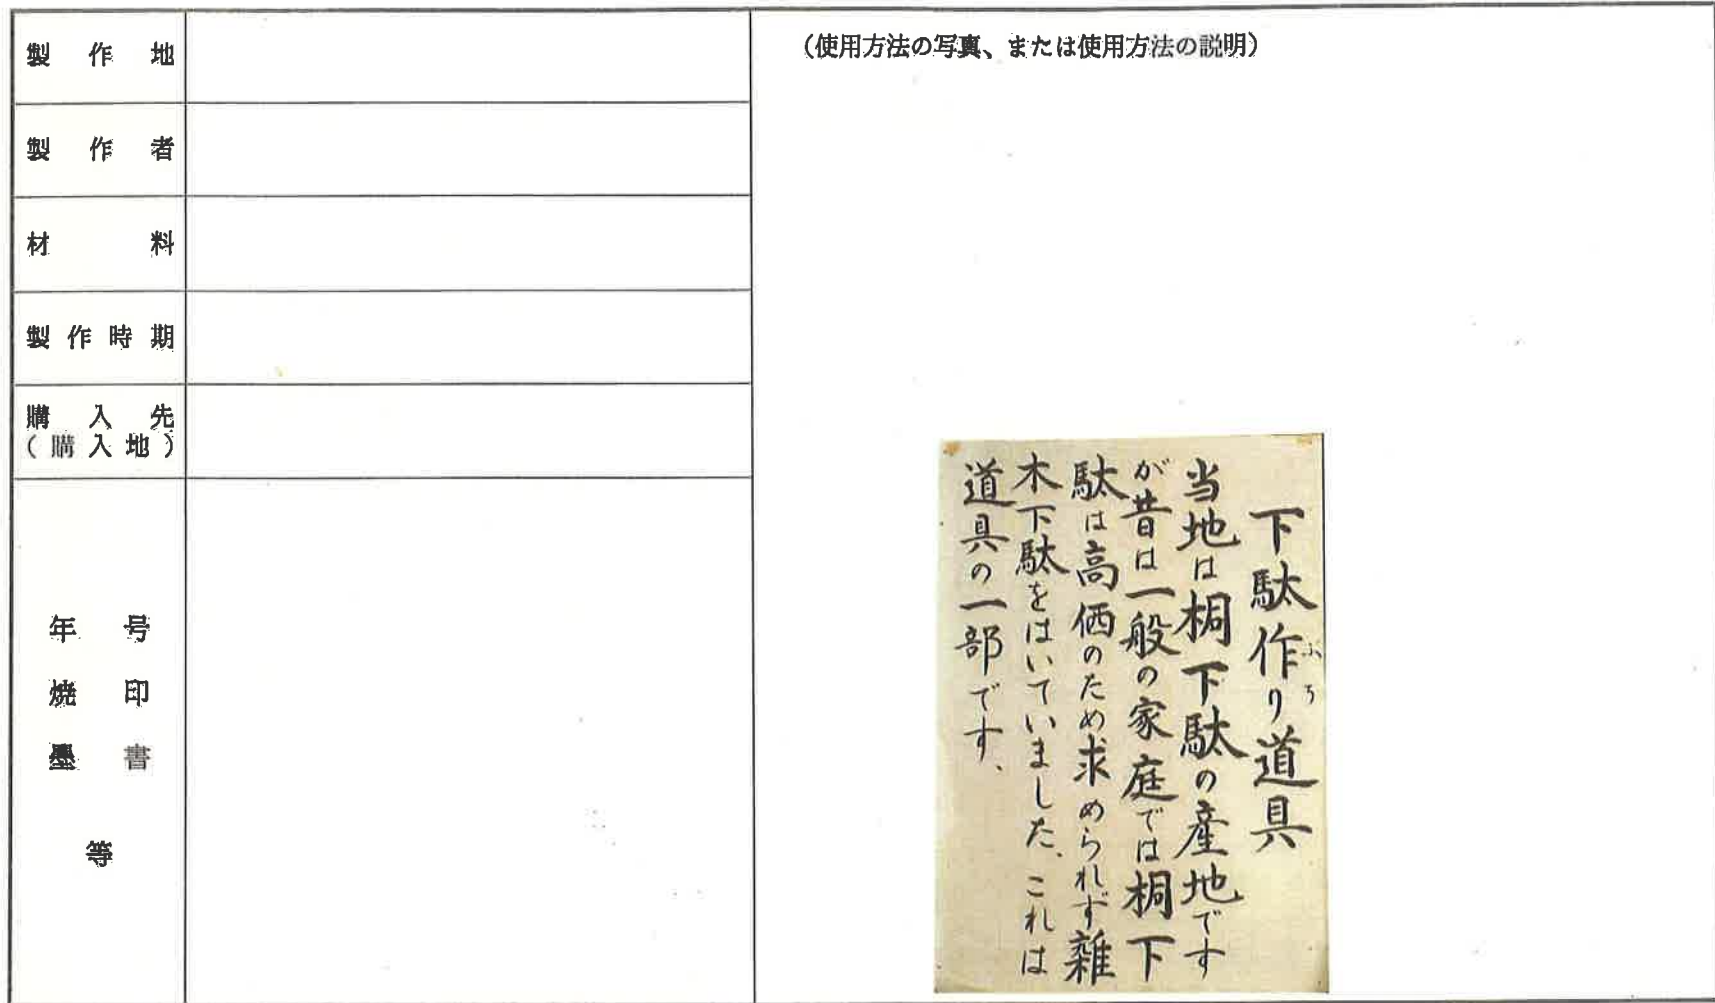 製作地
製作者
材料
製作時期
購入先
(購入地)
年号
焼印
墨書
等
(使用方法の写真、または使用方法の説明)
下駄作り道具
ぶち
当地は桐下駄の産地です
が昔は一般の家庭では桐下
駄は高価のため求められず雑
木下駄をはいていました、これは
道具の一部です、